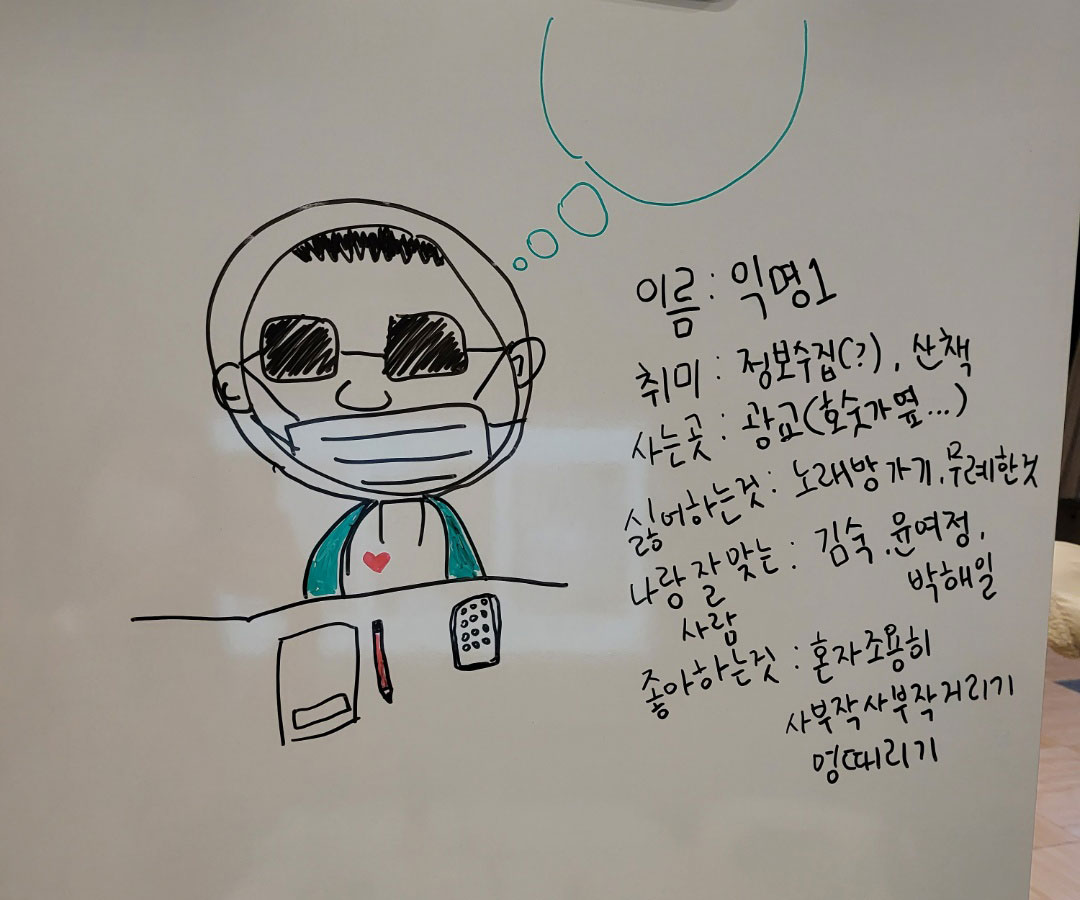 이름 : 익명1
취미 : 정보수집(?), 산책
사는곳 : 광교(호숫가옆...)
싫어하는것 : 노래방가기, 무례한것
나랑 잘 맞는 : 김숙, 윤여정,
사람 박해일
좋아하는것 : 혼자조용히
사부작사부작거리기
멍때리기